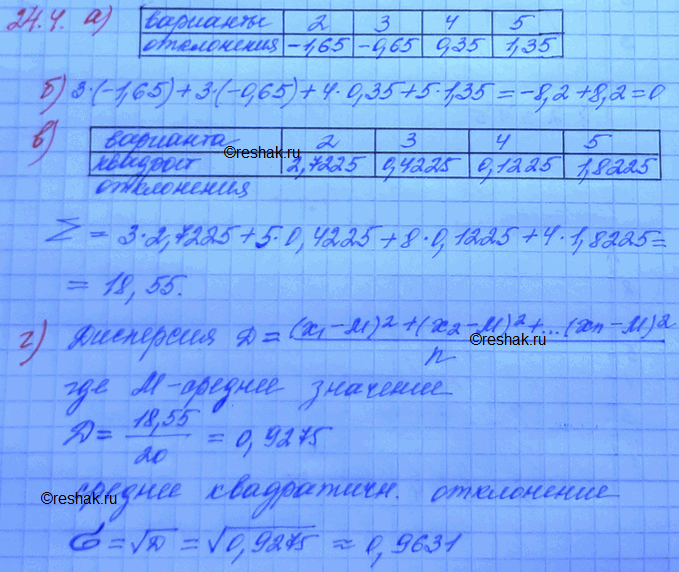 24.4. а) варианты 2 3 4 5
отклонения -1,65 -0,65 0,35 1,35
б) 3·(-1,65)+3·(-0,65)+4·0,35+5·1,35=-8,2+8,2=0
в) варианта 2 3 4 5
квадрат ©reshak.ru 2,7225 0,4225 0,1225 1,8225
отклонения
Σ = 3·2,7225+5·0,4225+8·0,1225+4·1,8225=
= 18,55.
г) Дисперсия D = (x₁-М)²+(x₂-М)²+...(xn-М)² / n
©reshak.ru
где М-среднее значение
D = 18,55 / 20 = 0,9275
©reshak.ru
среднее квадратичн. отклонение
σ = √D = √0,9275 ≈ 0,9631